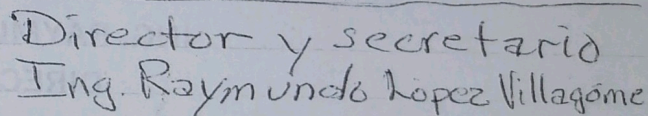 Director y secretario
Ing. Raymundo Lopez Villagome